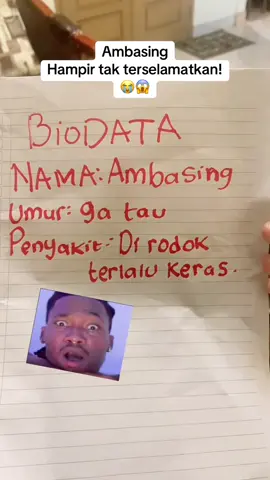 Ambasing
Hampir tak terselamatkan!
😭😱
BioDATA
NAMA: Ambasing
Umur: ga tau
Penyakit: Di rodok
terlalu keras.